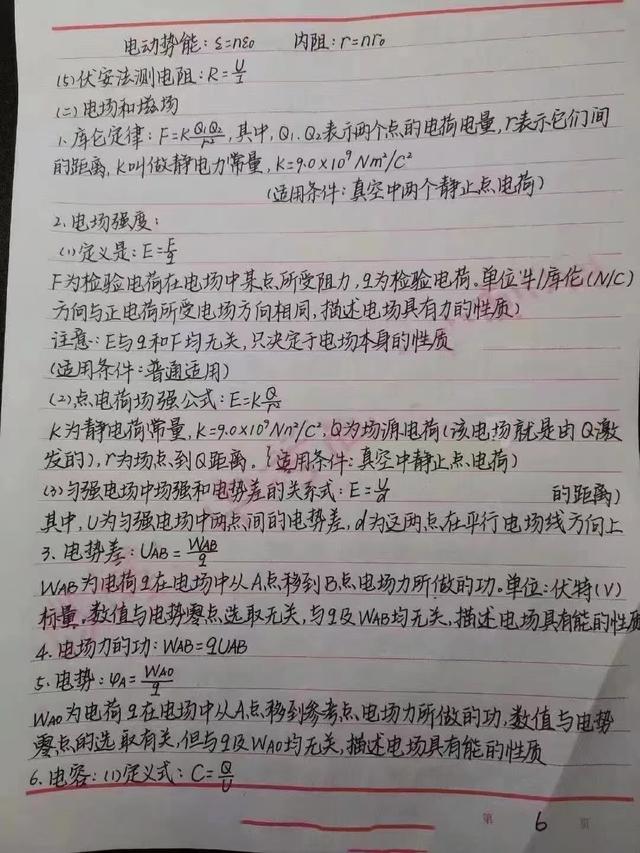 电动势能：ε=nε₀  内阻：r=nr₀
(5)伏安法测电阻：R=U/I
(二)电场和磁场
1.库仑定律：F=KQ₁Q₂/r²，其中，Q₁.Q₂表示两个点的电荷电量，r表示它们间
的距离，K叫做静电力常量，K=9.0×10⁹Nm²/C²
(适用条件：真空中两个静止点电荷)
2.电场强度：
(1)定义是：E=F/q
F为检验电荷在电场中某点所受阻力，q为检验电荷。单位牛/库伦(N/C)
方向与正电荷所受电场方向相同，描述电场具有力的性质)
注意：E与q和F均无关，只决定于电场本身的性质
(适用条件：普通适用)
(2)点电荷场强公式：E=KQ/r²
K为静电荷常量，K=9.0×10⁹Nn²/C²，Q为场源电荷(该电场就是由Q激
发的)，r为场点到Q距离。{适用条件：真空中静止点电荷)
(3)匀强电场中场强和电势差的关系式：E=U/d  的距离)
其中，U为匀强电场中两点间的电势差，d为这两点在平行电场线方向上
3.电势差：UAB=WAB/q
WAB为电荷q在电场中从A点移到B点电场力所做的功。单位：伏特(V)
标量。数值与电势零点选取无关，与q及WAB均无关，描述电场具有能的性质
4.电场力的功：WAB=qUAB
5.电势：φA=WAO/q
WAO为电荷q在电场中从A点移到参考点电场力所做的功，数值与电势
零点的选取有关，但与q及WAO均无关，描述电场具有能的性质
6.电容：(1)定义式：C=Q/U
第 6 页